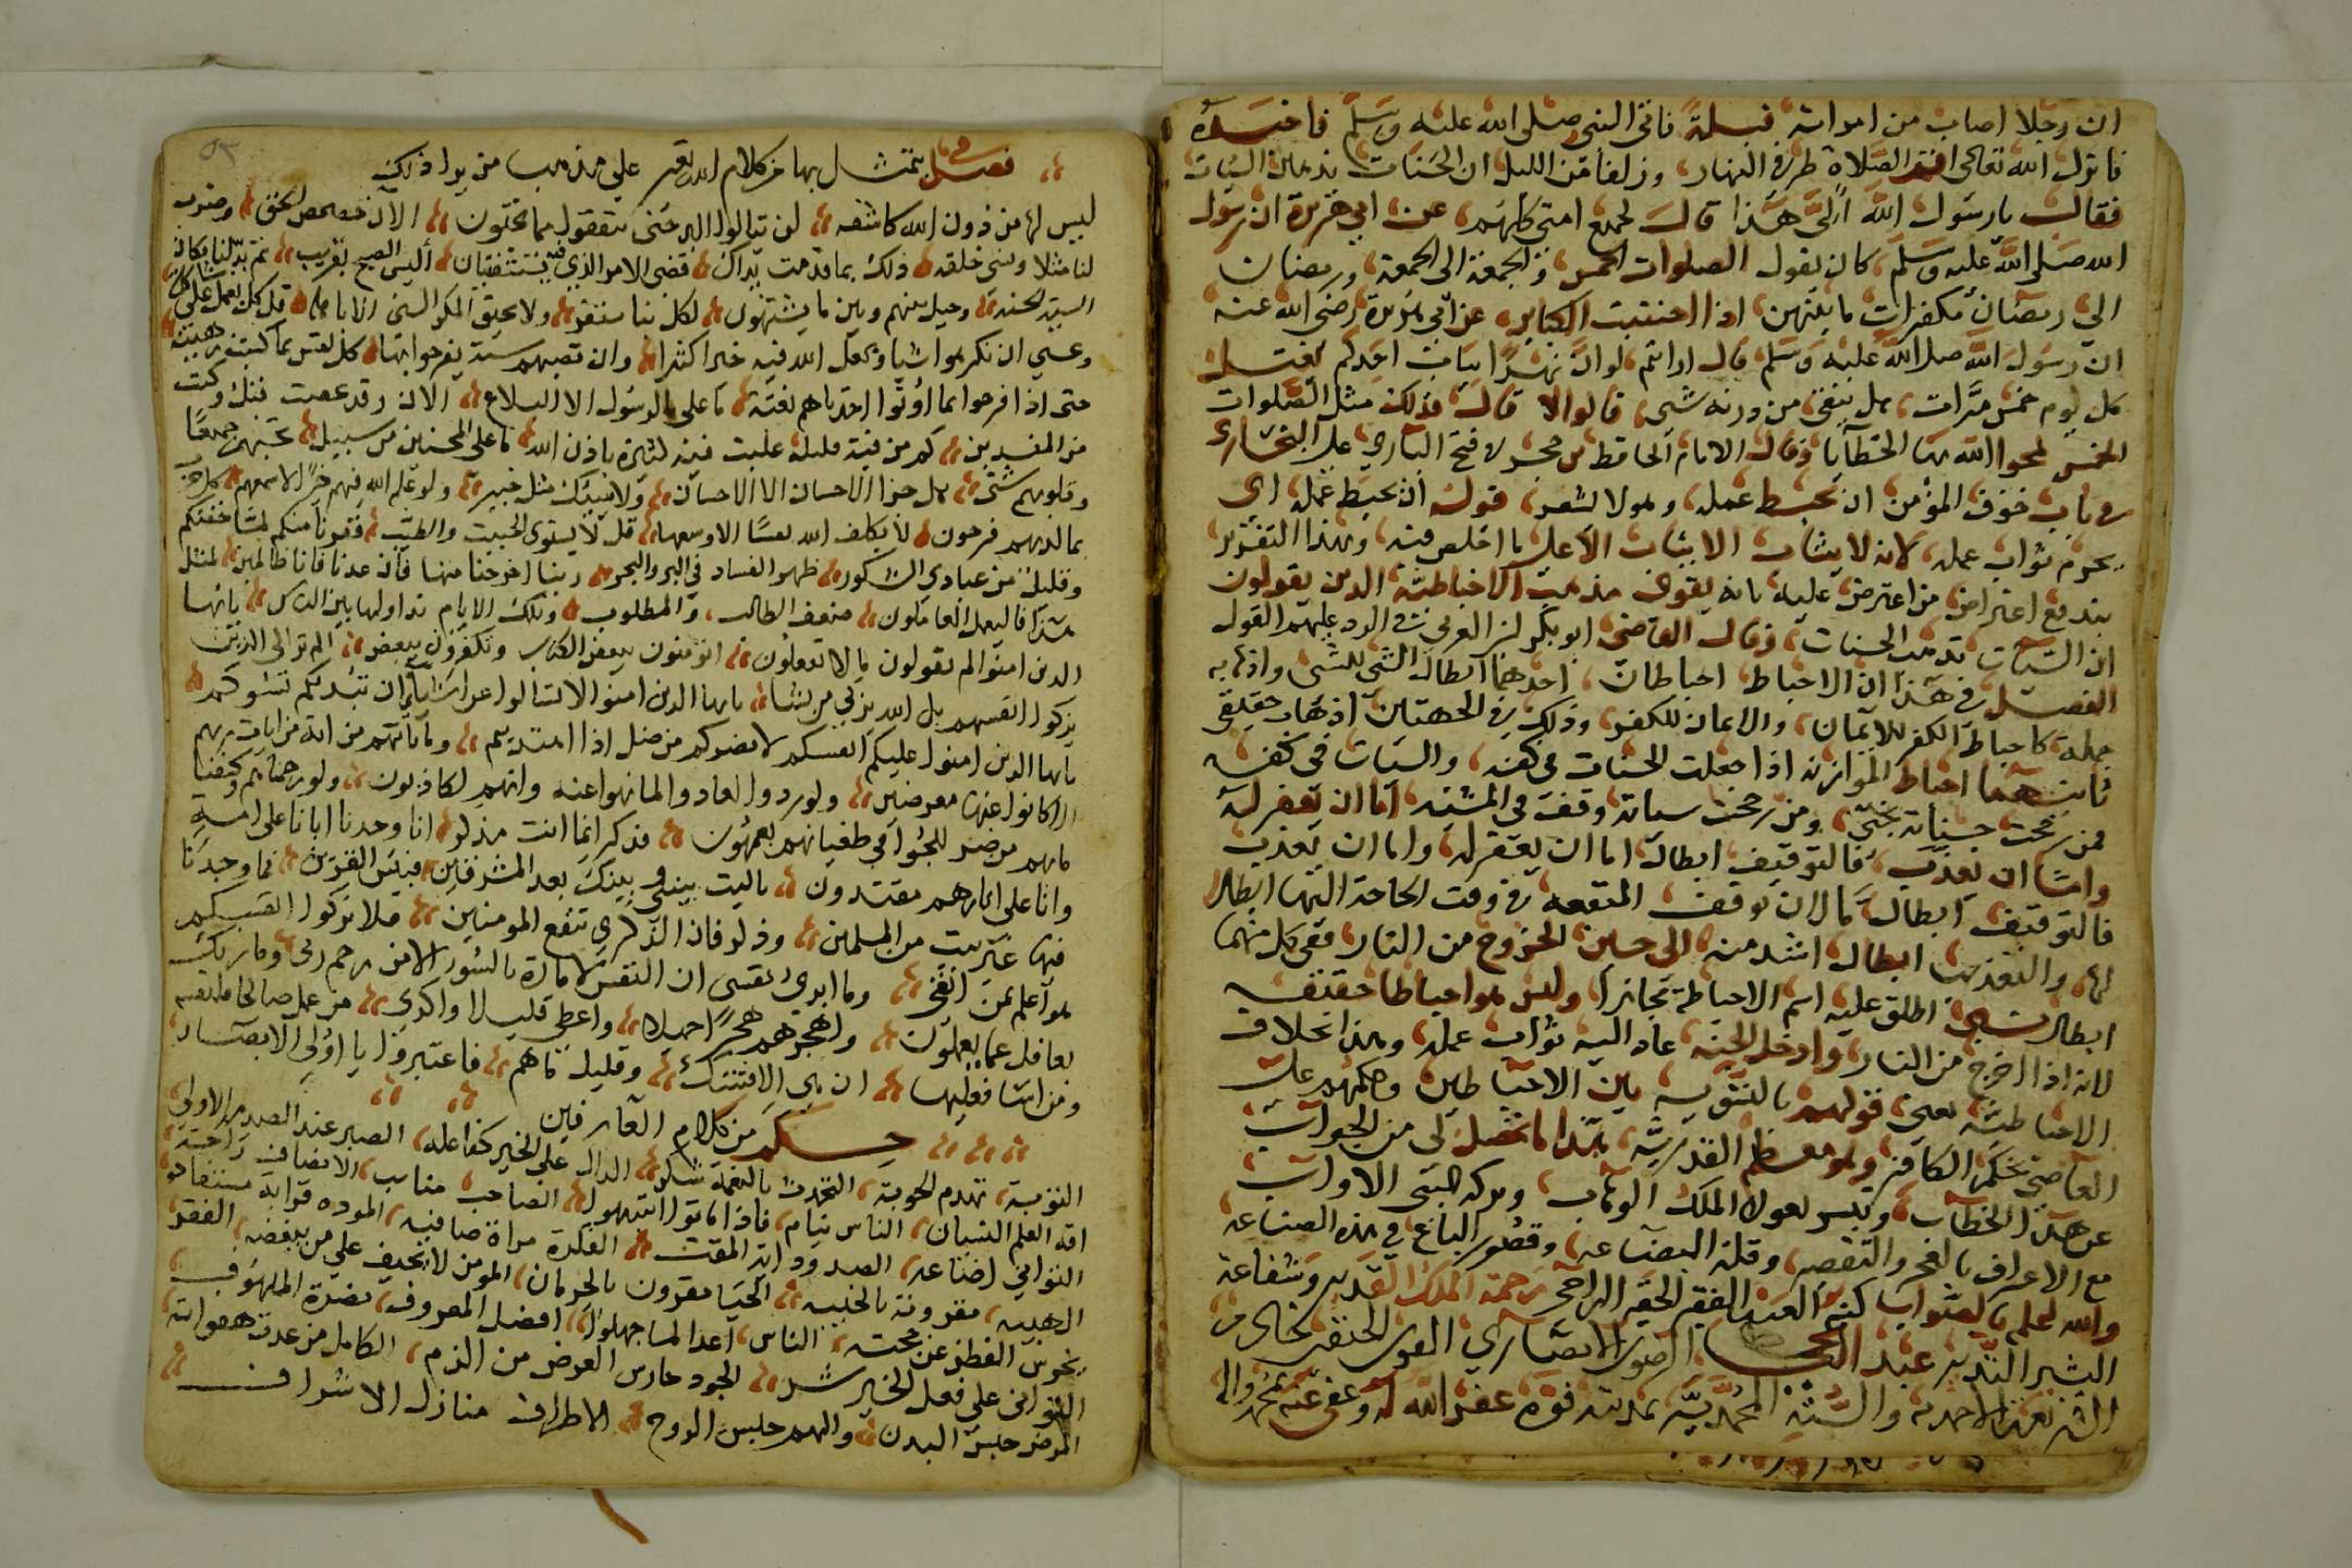 ان رجلا اصاب من امراته قبلة فاتى النبى صلى الله عليه وسلم فاخبره
فانزل الله تعالى اقم الصلاة طرفى النهار وزلفا من الليل ان الحسنات يذهبن السيات
فقال يا رسول الله ألى هذا قال لجميع امتى كلهم عن ابى هريرة ان رسول
الله صلى الله عليه وسلم كان يقول الصلوات الخمس والجمعة الى الجمعة ورمضان
الى رمضان مكفرات ما بينهن اذا اجتنبت الكباير عن ابى هريرة رضى الله عنه
ان رسول الله صلى الله عليه وسلم قال ارايتم لو ان نهرا بباب احدكم يغتسل
كل يوم خمس مرات هل يبقى من درنه شى قالوا لا قال فذلك مثل الصلوات
الخمس يمحوا الله بها الخطايا وقال الامام الحافظ بن حجر فى فتح البارى على البخارى
فى باب خوف المؤمن ان يحبط عمله وهو لا يشعر قوله ان يحبط عمله اى
يحرم ثواب عمله لانه لا يثاب الا على ما اخلص فيه وبهذا التقرير
يندفع اعتراض من اعترض عليه بانه يقوى مذهب الاحباطية الذين يقولون
ان السيات تذهب الحسنات وقال القاضى ابو بكر بن العربى فى الرد عليهم القول
الفصل فى هذا ان الاحباط احباطان احدهما ابطال الشى للشى واذهابه
جملة كاحباط الكفر للايمان والايمان للكفر وذلك فى الجهتين اذهاب حقيقى
ثانيهما احباط الموازنه اذا جعلت الحسنات فى كفه والسيات فى كفه
فمن رجحت حسناته نجى ومن رجحت سياته وقف فى المشية اما ان يغفر له
واما ان يعذب فالتوقيف ابطال اما ان يغفر له واما ان يعذب
فالتوقيف ابطال ما لان توقف المنفعه فى وقت الحاجة اليها ابطال
لها والتعذيب ابطال اشد منه الى حين الخروج من النار ففى كل منهما
ابطال نسبى اطلق عليه اسم الاحباط مجازا وليس هو احباطا حقيقة
لانه اذا اخرج من النار وادخل الجنة عاد اليه ثواب عمله وهذا بخلاف
الاحباطية يعنى قولهم بالتسوية بين الاحباطين وحكمهم على
العاصى بحكم الكافر وهم معظم القدرية هذا ما تحصل لى من الجواب
عن هذا الخطاب وتيسر بعون الملك الوهاب وبركة النبى الاواب
مع الاعتراف بالعجز والتقصير وقلة البضاعه وقصور الباع فى هذه الصناعه
والله اعلم بالصواب كتبه العبد الفقير الحقير الراجى رحمة الملك القدير وشفاعة
البشير النذير عبد الانصارى الفوى الحنفى
الاحمديه والسنة المحمدية بمدينة فوة غفر الله له وعفى عنه بمحمد واله
فصل فى ما يتمثل بها من كلام الله تعالى على مذهب من يرا ذلك
ليس لها من دون الله كاشفه لن تنالوا البر حتى تنفقوا مما تحبون الآن حصحص الحق وضرب
لنا مثلا ونسى خلقه ذلك بما قدمت يداك قضى الامر الذى فيه تستفتيان أليس الصبح بقريب ثم بدلنا مكان
السيئة الحسنة وحيل بينهم وبين ما يشتهون لكل نبا مستقر ولا يحيق المكر السى الا باهله قل كل يعمل على شاكلته
وعسى ان تكرهوا شيا ويجعل الله فيه خيرا كثيرا وان تصبهم سيئة يفرحوا بها كل نفس بما كسبت رهينة
حتى اذا فرحوا بما اوتوا اخذناهم بغتة ما على الرسول الا البلاغ الآن وقد عصيت قبل وكنت
من المفسدين كم من فئة قليلة غلبت فئة كثيرة باذن الله ما على المحسنين من سبيل تحسبهم جميعا
وقلوبهم شتى هل جزا الاحسان الا الاحسان ولا ينبئك مثل خبير ولو علم الله فيهم خيرا لاسمعهم كل حزب
بما لديهم فرحون لا يكلف الله نفسا الا وسعها قل لا يستوى الخبيث والطيب ففررت منكم لما خفتكم
وقليل من عبادى الشكور ظهر الفساد فى البر والبحر ربنا اخرجنا منها فان عدنا فانا ظالمين لمثل
هذا فاليعمل العاملون ضعف الطالب والمطلوب وتلك الايام نداولها بين الناس يا ايها
الذين امنوا لم تقولون ما لا تفعلون افتؤمنون ببعض الكتاب وتكفرون ببعض الم تر الى الذين
يزكون انفسهم بل الله يزكى من يشا يا ايها الذين امنوا لا تسألوا عن اشيا ان تبد لكم تسؤكم
يا ايها الذين امنوا عليكم انفسكم لا يضركم من ضل اذا اهتديتم وما تاتيهم من اية من ايات ربهم
الا كانوا عنها معرضين ولو ردوا لعادوا لما نهوا عنه وانهم لكاذبون ولو رحمناهم وكشفنا
ما بهم من ضر للجوا فى طغيانهم يعمهون فذكر انما انت مذكر انا وجدنا ابانا على امة
وانا على اثارهم مقتدون يا ليت بينى وبينك بعد المشرقين فبيس القرين فما وجدنا
فيها غير بيت من المسلمين وذكر فان الذكرى تنفع المومنين فلا تزكوا انفسكم
هو اعلم بمن اتقى وما ابرى نفسى ان النفس لامارة بالسوء الا من رحم ربى وما ربك
بغافل عما يعملون واهجرهم هجرا جميلا واعطى قليلا واكدى من عمل صالحا فلنفسه
ومن اسا فعليها ان هى الا فتنتك وقليل ما هم فاعتبروا يا اولى الابصار
حكم من كلام العارفين
التوبة تهدم الحوبة التحدث بالنعمة شكر الدال على الخير كفاعله الصبر عند الصدمة الاولى
افة العلم النسيان الناس نيام فاذا ماتوا انتبهوا الصاحب مناسب الانصاف راحة
التوانى اضاعة الصدود اية المقت الفكرة مراة صافية المودة قرابة مستفادة
الهيبة مقرونة بالخيبة الحيا مقرون بالحرمان المومن لا يحيف على من يبغضه الفقر
يخرس الفطن عن حجته الناس اعدا لما جهلوا افضل المعروف نصرة الملهوف
التوانى على فعل الخير شر الجود حارس العرض من الذم الكامل من عدت هفواته
المرض حبس البدن والهم حبس الروح الاطراف منازل الاشراف